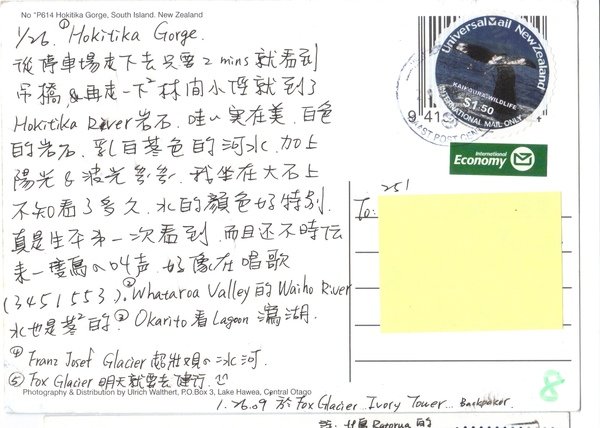 No °P614 Hokitika Gorge, South Island. New Zealand
1/26. ①Hokitika Gorge.
從停車場走下去只要2 mins就看到
吊橋,&再走一下²林間小徑就到了
Hokitika River岩石.哇~實在美.白色
的岩石.乳白菶色的河水.加上
陽光&波光多多.我坐在大石上
不知看了多久.水的顏色好特別.
真是生平第一次看到.而且还不時伝
來一隻鳥の叫声.好像在唱歌
(3451553).②Whataroa Valley的Waiho River
水也是菶²的.③Okarito看Lagoon瀉湖.
④Franz Josef Glacier超壯觀の冰河.
⑤Fox Glacier明天就要去健行.
Photography & Distribution by Ulrich Walthert, P.O.Box 3, Lake Hawea, Central Otago
1.26.09 於Fox Glacier...Ivory Tower... Backpacker.
UniversalMail NewZealand
KAIKOURA WILDLIFE
$1.50
INTERNATIONAL MAIL ONLY
9 415
FAST POST CEN
International
Economy
251
To:
8
Rotorua的